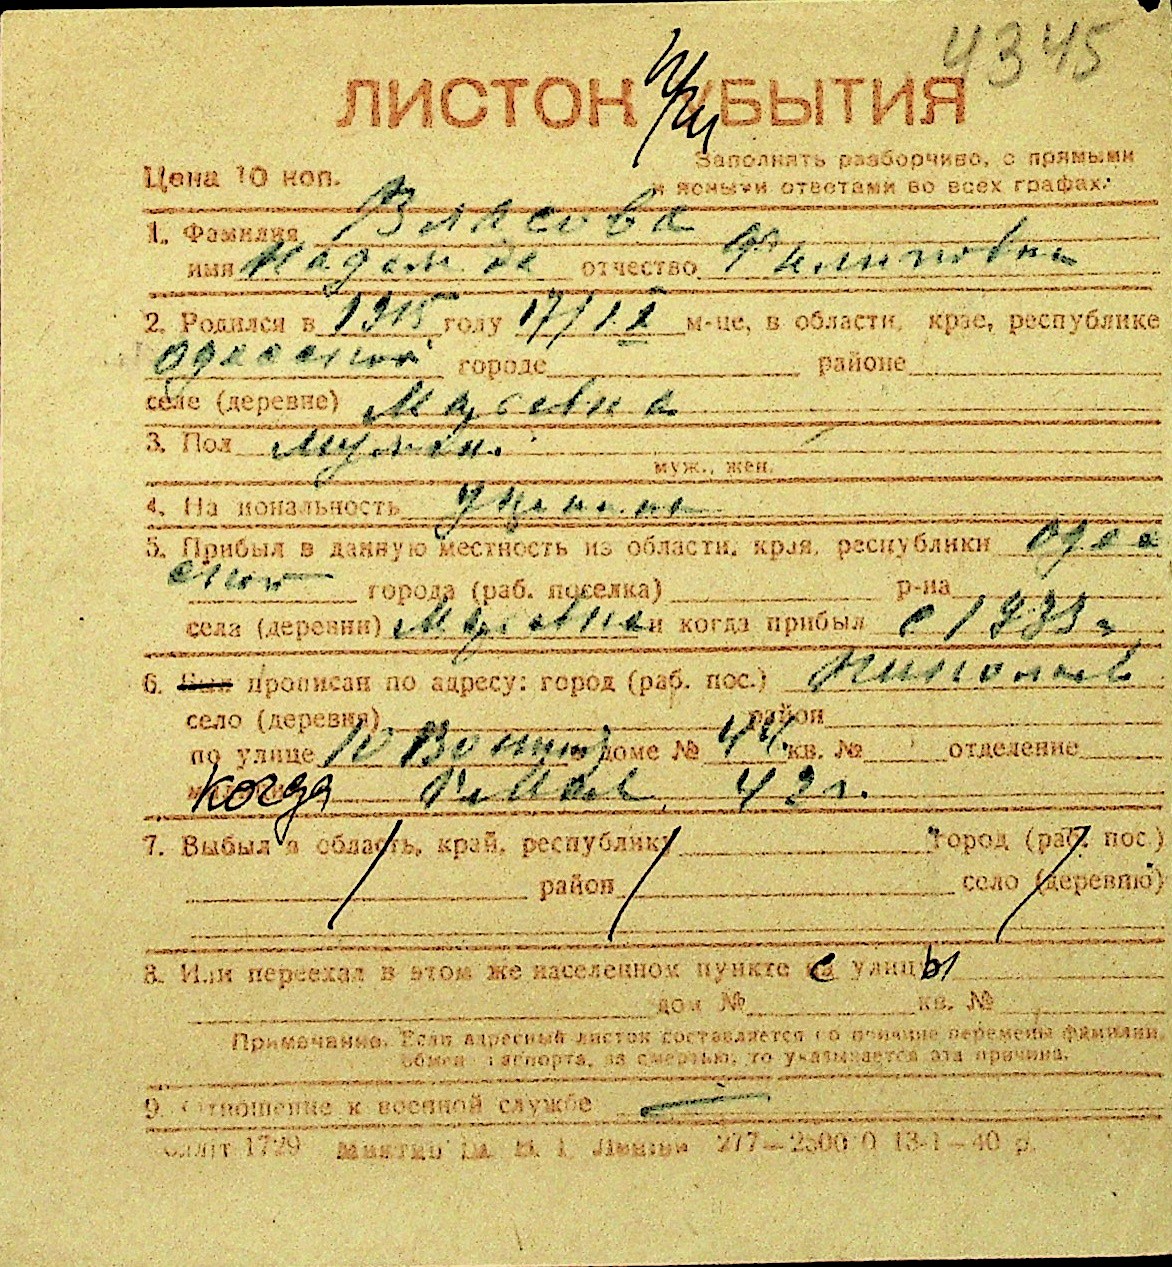 4345
ЛИСТОН УБЫТИЯ
Цена 10 коп.
Заполнять разборчиво, с прямыми
и ясными ответами во всех графах.
1. Фамилия Власова
имя Надежда отчество Филиповна
2. Родился в 1915 году 17/IX м-це, в области, крае, республике
Одесской городе районе
селе (деревне)
3. Пол
муж., жен.
4. На иональность
5. Прибыл в данную местность из области, края, республики Одес
ской города (раб. поселка) р-на
села (деревни) и когда прибыл с
6. прописан по адресу: город (раб. пос.) Николаев
село (деревня) район
по улице доме № 44 кв. № отделение
когда 42 г.
7. Выбыл в область, край, республику город (раб. пос.)
район село (деревню)
8. Или переехал в этом же населенном пункте с улицы
дом № кв. №
Примечание. Если адресный листок составляется по причине перемены фамилии,
обмен паспорта, за смертью, то указывается эта причина.
9. Отношение к военной службе
1729 277—2500 0 13-1—40 р.